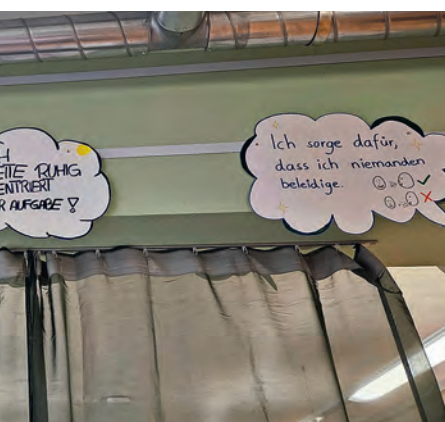 EITE RUHIG
ENTRIERT
R AUFGABE !
Ich sorge dafür,
dass ich niemanden
beleidige.